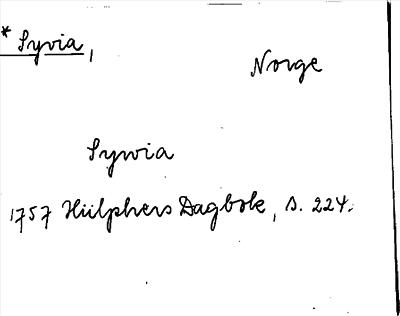 * Syvia,
Norge
Syvia
1757 Hülphers Dagbok, s. 224.